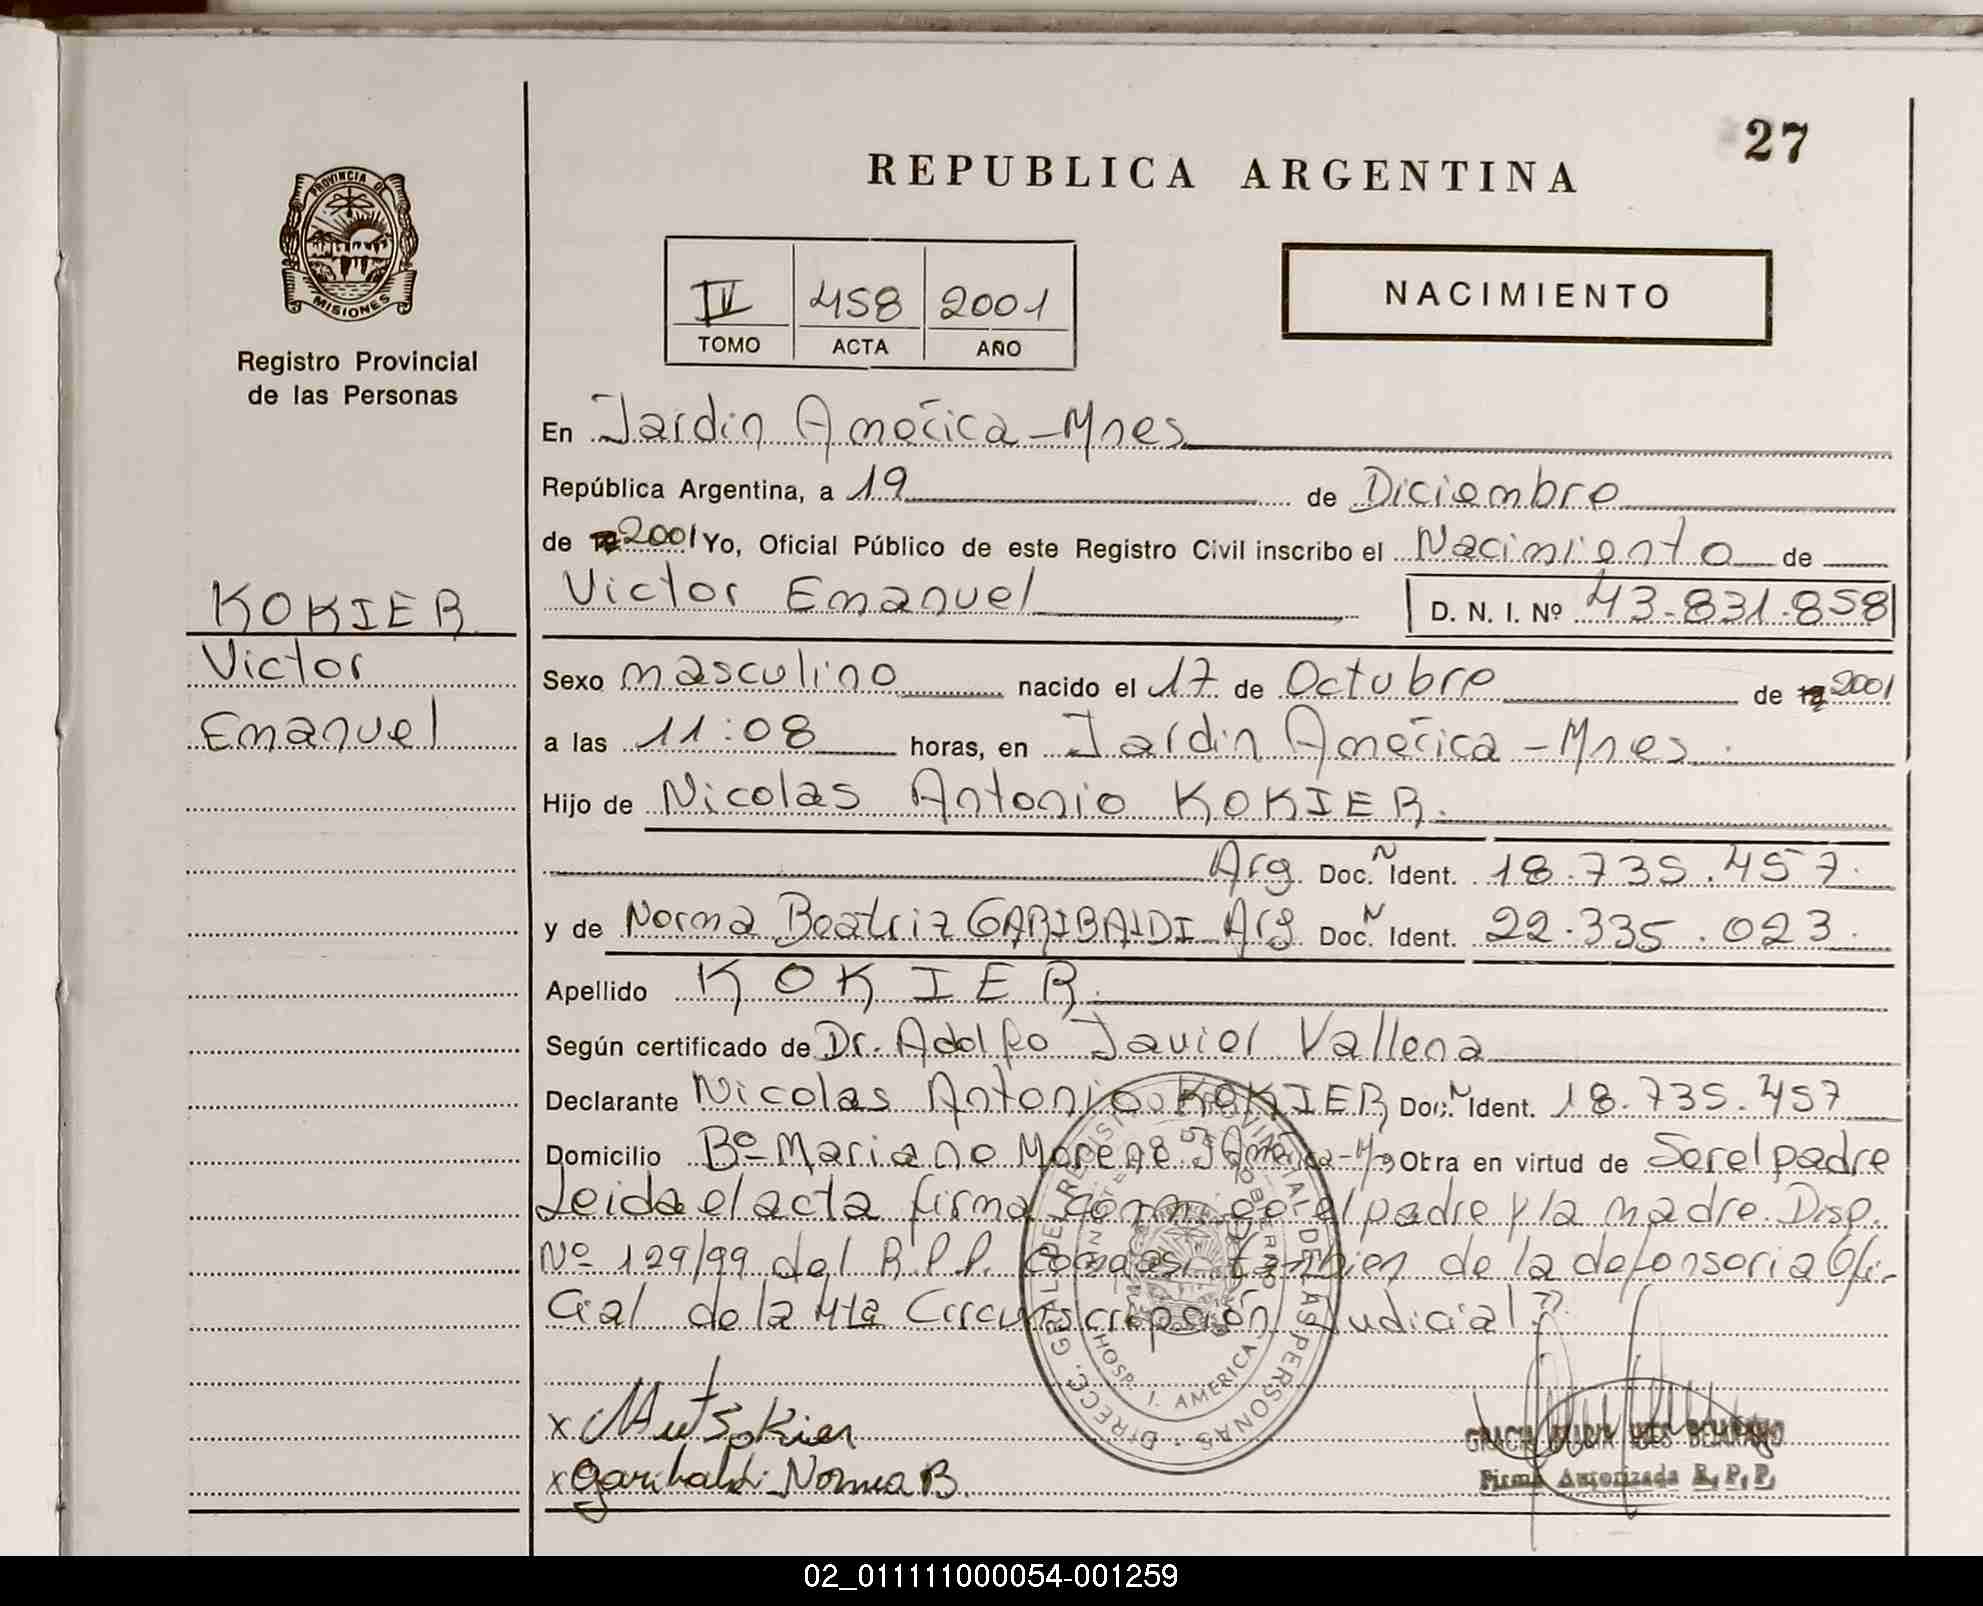 27
REPUBLICA ARGENTINA
PROVINCIA DE
MISIONES
Registro Provincial
de las Personas
IV 458 2001
TOMO ACTA AÑO
NACIMIENTO
En Jardin América - Mnes
República Argentina, a 19 de Diciembre
de 2001 Yo, Oficial Público de este Registro Civil inscribo el Nacimiento de
KOKIER
Victor
Emanuel
Victor Emanuel D. N. I. Nº 43.831.858
Sexo masculino nacido el 17 de Octubre de 2001
a las 11:08 horas, en Jardin América - Mnes.
Hijo de Nicolas Antonio KOKIER.
Arg. Doc. N Ident. 18.735.457.
y de Norma Beatriz GARIBALDI Arg. Doc. N Ident. 22.335.023.
Apellido KOKIER.
Según certificado de Dr. Adolfo Javier Vallena
Declarante Nicolas Antonio KOKIER Doc. N Ident. 18.735.457
Domicilio Bº Mariano Moreno J. América - M Obra en virtud de Ser el padre
Leida el acta firma conm el padre y la madre. Disp.
Nº 129/99 del R.P.P. tambien de la defensoria Ofi-
cial de la 4ta Circunscripción Judicial"
DIRECC. GRAL DEL REGISTRO PROVINCIAL DE LAS PERSONAS
HOSP. J. AMERICA
x
x Garibaldi Norma B.
Firma Autorizada R.P.P.
02_011111000054-001259